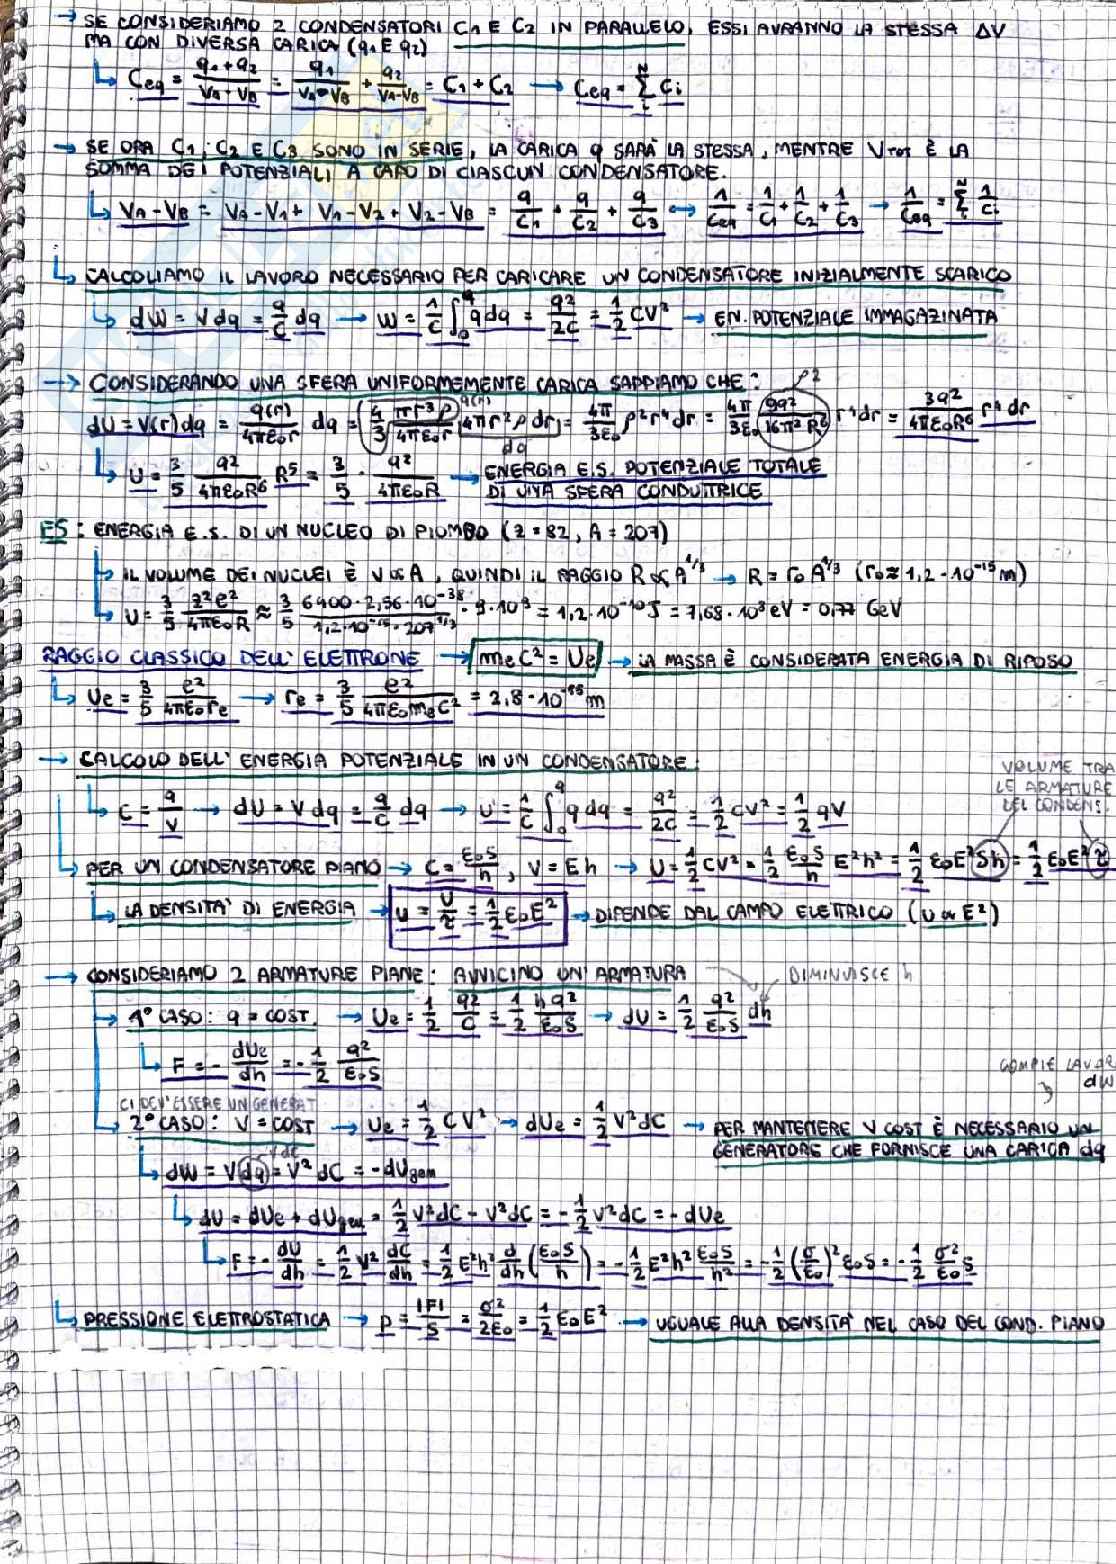 → SE CONSIDERIAMO 2 CONDENSATORI C1 E C2 IN PARALLELO, ESSI AVRANNO LA STESSA ΔV
MA CON DIVERSA CARICA (q1 E q2)
↳ Ceq = (q1+q2)/(VA-VB) = q1/(VA-VB) + q2/(VA-VB) = C1 + C2 → Ceq = Σ_i^N Ci
→ SE ORA C1, C2 E C3 SONO IN SERIE, LA CARICA q SARÀ LA STESSA, MENTRE VTOT È LA
SOMMA DEI POTENZIALI A CAPO DI CIASCUN CONDENSATORE.
↳ VA-VB = VA-V1 + V1-V2 + V2-VB = q/C1 + q/C2 + q/C3 ↔ 1/Ceq = 1/C1 + 1/C2 + 1/C3 → 1/Ceq = Σ_i^N 1/Ci
↳ CALCOLIAMO IL LAVORO NECESSARIO PER CARICARE UN CONDENSATORE INIZIALMENTE SCARICO
↳ dW = V dq = q/C dq → W = 1/C ∫_0^q q dq = q²/2C = 1/2 CV² → EN. POTENZIALE IMMAGAZINATA
→ CONSIDERANDO UNA SFERA UNIFORMEMENTE CARICA SAPPIAMO CHE: ρ²
dU = V(r)dq = q(r)/(4πε0r) dq = (4/3 πr³ρ/(4πε0r)) 4πr²ρdr = 4π/3ε0 ρ²r⁴dr = 4π/3ε0 (9q²/16π²R⁶) r⁴dr = 3q²/(4πε0R⁶) r⁴dr
q(r)
dq
↳ U = 3/5 q²/(4πε0R⁶) R⁵ = 3/5 · q²/(4πε0R) → ENERGIA E.S. POTENZIALE TOTALE
DI UNA SFERA CONDUTTRICE
ES: ENERGIA E.S. DI UN NUCLEO DI PIOMBO (Z=82, A=207)
↳ IL VOLUME DEI NUCLEI È V∝A, QUINDI IL RAGGIO R∝A^1/3 → R = r0A^1/3 (r0≈1,2·10^-15 m)
↳ U = 3/5 Z²e²/(4πε0R) ≈ 3/5 (6400·2,56·10^-38)/(1,2·10^-15·207^1/3) · 9·10⁹ = 1,2·10^-10 J = 7,68·10³ eV = 0,77 GeV
RAGGIO CLASSICO DELL'ELETTRONE → meC² = Ue → LA MASSA È CONSIDERATA ENERGIA DI RIPOSO
↳ Ue = 3/5 e²/(4πε0re) → re = 3/5 e²/(4πε0meC²) = 2,8·10^-15 m
→ CALCOLO DELL'ENERGIA POTENZIALE IN UN CONDENSATORE:
VOLUME TRA
LE ARMATURE
DEL CONDENS.
↳ C = q/V → dU = V dq = q/C dq → U = 1/C ∫_0^q q dq = q²/2C = 1/2 CV² = 1/2 qV
↳ PER UN CONDENSATORE PIANO → C = ε0S/h, V = Eh → U = 1/2 CV² = 1/2 ε0S/h E²h² = 1/2 ε0E²Sh = 1/2 ε0E²τ
↳ LA DENSITA' DI ENERGIA → u = U/τ = 1/2 ε0E² → DIPENDE DAL CAMPO ELETTRICO (U∝E²)
→ CONSIDERIAMO 2 ARMATURE PIANE: AVVICINO UN'ARMATURA DIMINUISCE h
→ 1° CASO: q = COST. → Ue = 1/2 q²/C = 1/2 hq²/ε0S → dU = 1/2 q²/ε0S dh
↳ F = - dUe/dh = - 1/2 q²/ε0S
COMPIE LAVOR
dW
CI DEV'ESSERE UN GENERAT
→ 2° CASO: V = COST → Ue = 1/2 CV² → dUe = 1/2 V²dC → PER MANTENERE V COST È NECESSARIO UN
GENERATORE CHE FORNISCE UNA CARICA dq
VdC
↳ dW = Vdq = V²dC = -dUgen
↳ dU = dUe + dUgen = 1/2 V²dC - V²dC = -1/2 V²dC = -dUe
↳ F = - dU/dh = 1/2 V² dC/dh = 1/2 E²h² d/dh (ε0S/h) = -1/2 E²h² ε0S/h² = -1/2 (σ/ε0)² ε0S = -1/2 σ²/ε0 S
↳ PRESSIONE ELETTROSTATICA → p = |F|/S = σ²/2ε0 = 1/2 ε0E² → UGUALE ALLA DENSITA' NEL CASO DEL COND. PIANO